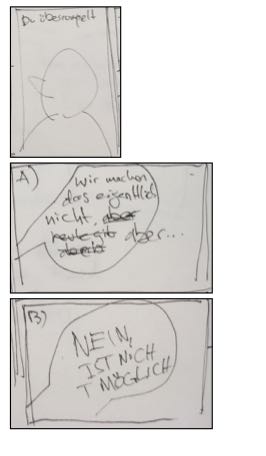 Du überrumpelt
A)
Wir machen
das eigentlich
nicht, aber
heute gibt aber...
B)
NEIN,
IST NICH
T MÖGLICH